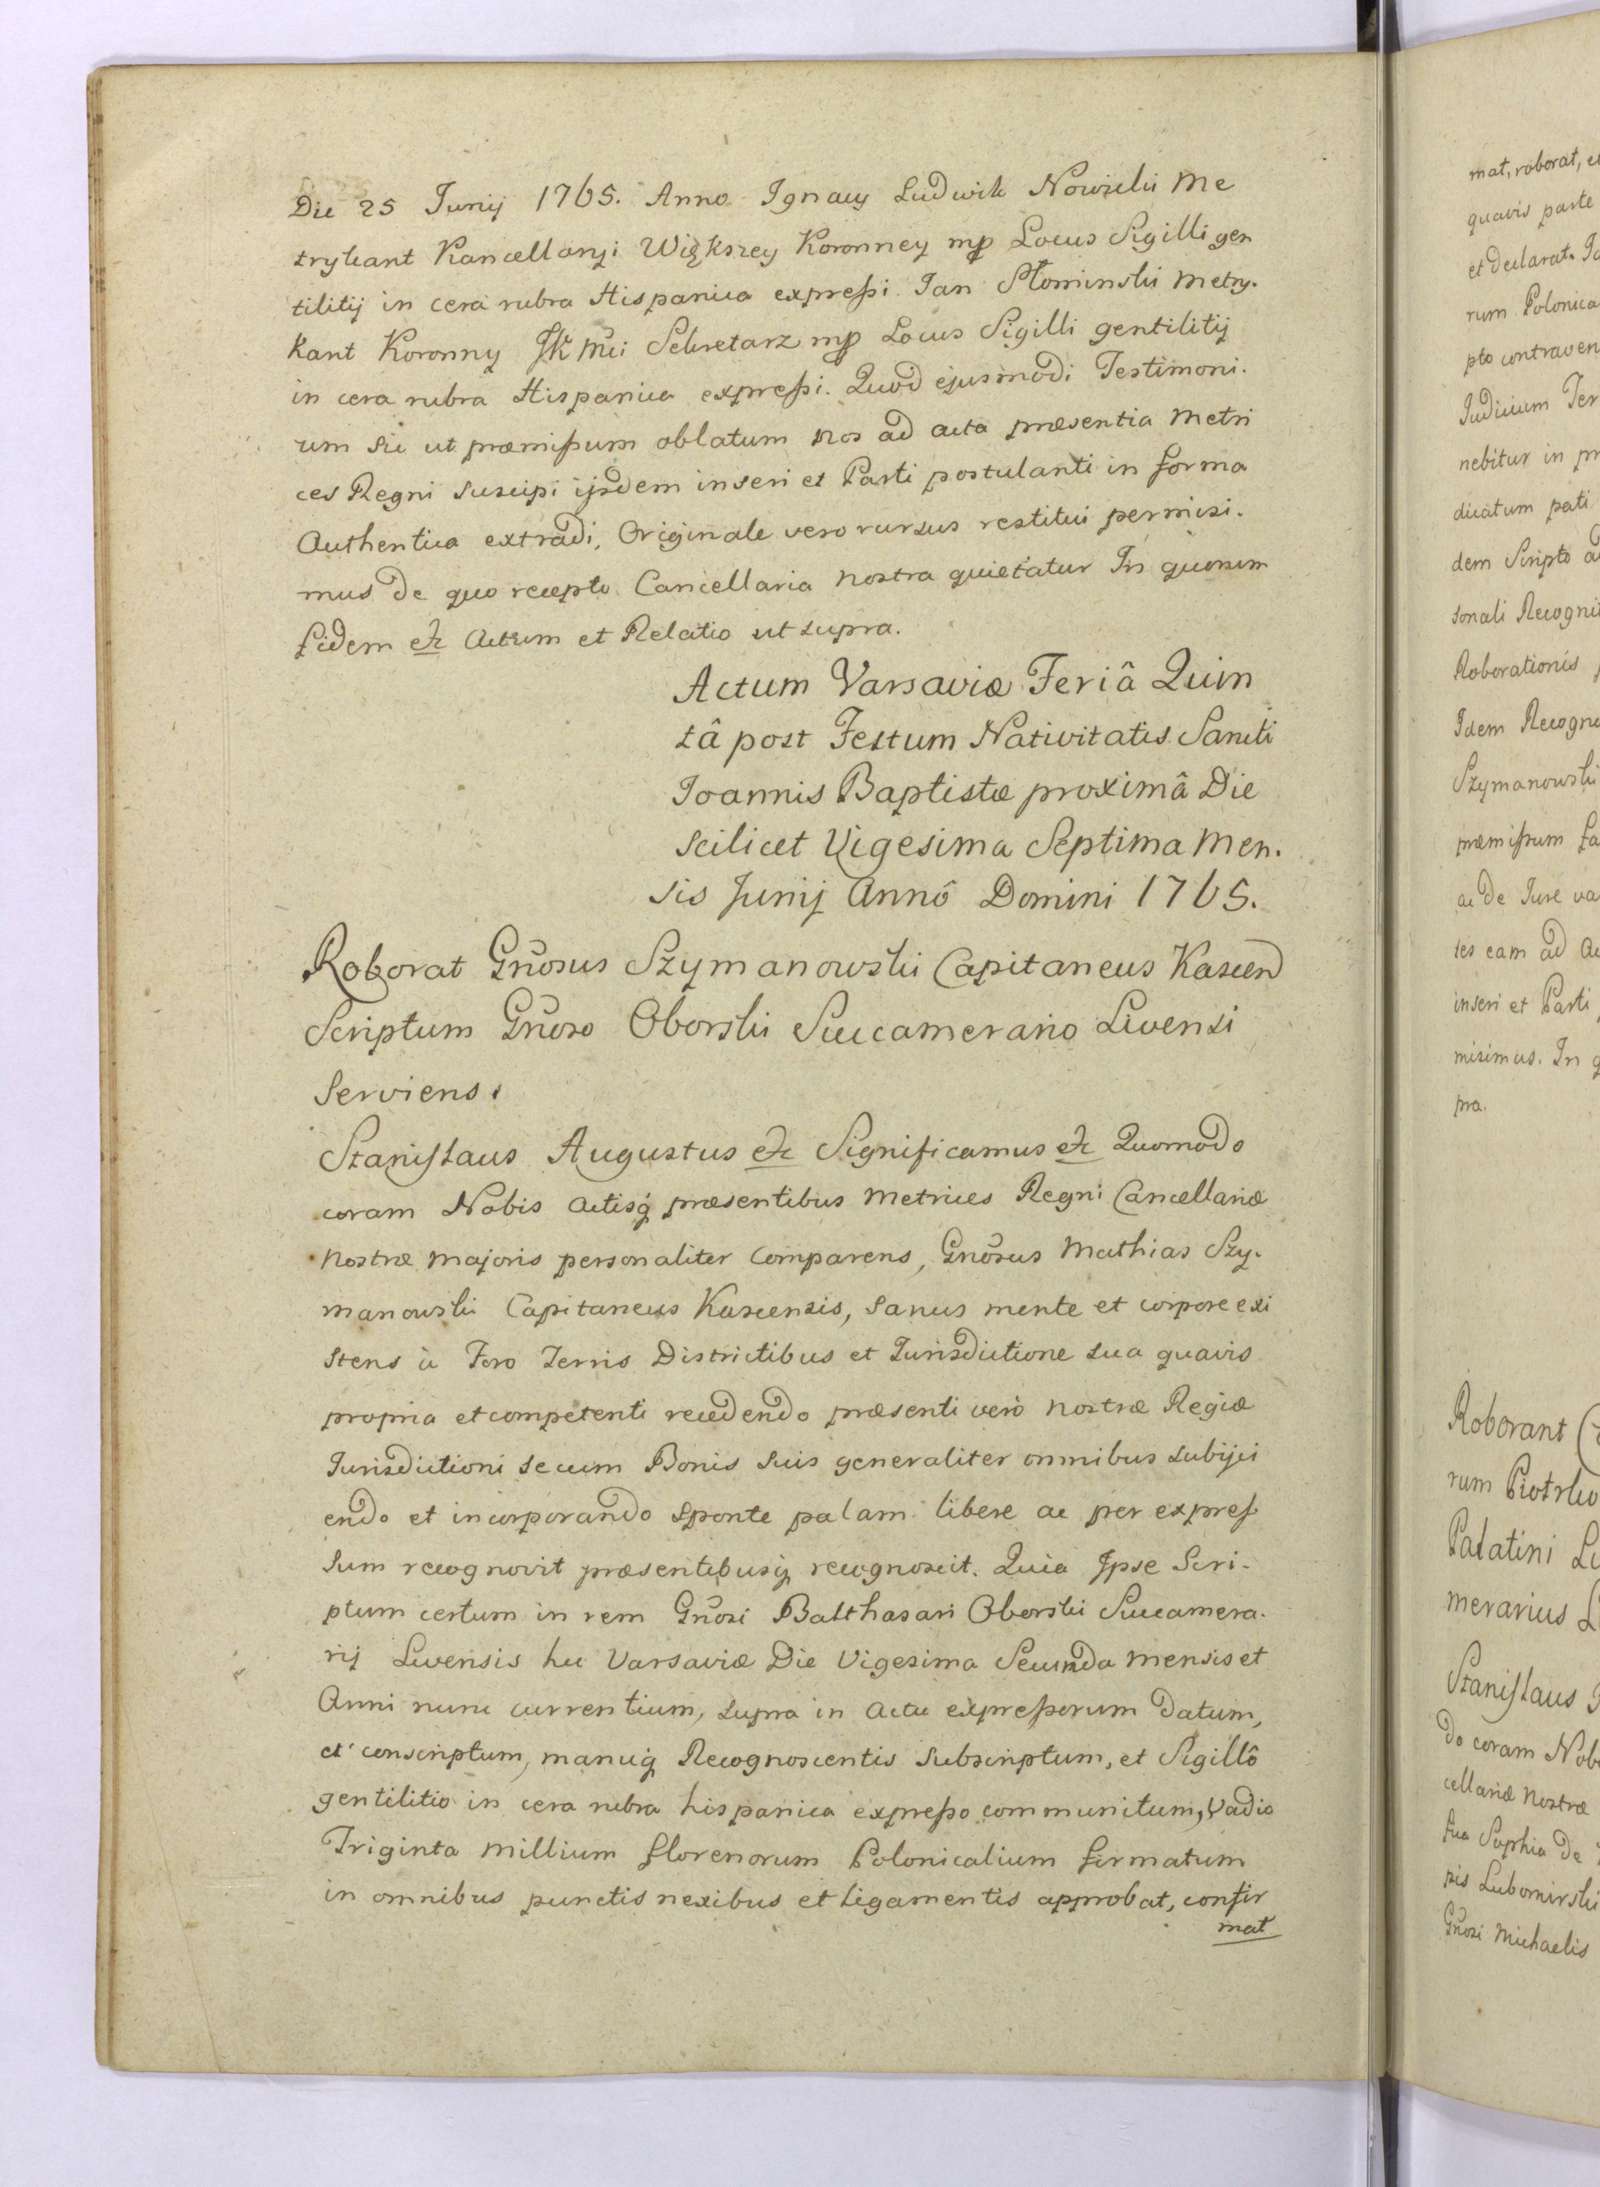 Die 25 Junij 1765. Anno Ignacy Ludwik Nowicki Me
trykant Kancellaryi Większey Koronney mp Locus Sigilli gen
tilitij in cera rubra Hispanica expreßi. Jan Słominski Metry-
kant Koronny JK Mci Sekretarz mp Locus Sigilli gentilitij
in cera rubra Hispanica expreßi. Quod ejusmodi Testimoni-
um sic ut præmißum oblatum nos ad acta præsentia Metri
ces Regni suscipi ijsdem inseri et Parti postulanti in forma
Authentica extradi, Originale vero rursus restitui permisi-
mus de quo recepto Cancellaria nostra quietatur In quorum
fidem etc Actum et Relatio ut supra.
Actum Varsaviæ Feriâ Quin
tâ post Festum Nativitatis Sancti
Joannis Baptistæ proximâ Die
scilicet Vigesima Septima Men-
sis Junij Annô Domini 1765.
Roborat Gnosus Szymanowski Capitaneus Kascen
Scriptum Gnoso Oborski Succamerario Livensi
Serviens.
Stanislaus Augustus etc Significamus etc Quomodo
coram Nobis Actisq præsentibus Metrices Regni Cancellariæ
Nostræ Majoris personaliter Comparens, Gnosus Mathias Szy-
manowski Capitaneus Kascensis, sanus mente et corpore exi
stens à Foro Terris Districtibus et Jurisdictione sua quavis
propria et competenti recedendo præsenti verò nostræ Regiæ
Jurisdictioni se cum Bonis suis generaliter omnibus subijci
endo et incorporando sponte palam libere ac per expreß
sum recognovit præsentibusq recognoscit. Quia Ipse Scri-
ptum certum in rem Gnosi Balthasari Oborski Succamera-
rij Livensis hic Varsaviæ Die Vigesima Secunda Mensis et
Anni nunc currentium, supra in Actu expreßorum Datum,
et conscriptum, manuq Recognoscentis subscriptum, et Sigillô
gentilitio in cera rubra hispanica expreßo communitum, Vadio
Triginta Millium florenorum Polonicalium firmatum
in omnibus punctis nexibus et ligamentis approbat, confir
mat
mat, roborat,
quavis parte
et declarat.
rum Polonica
pto contraven
Judicium Ter
nebitur in
dicatum pati
dem Scripto
sonali Recogni
Roborationis
Idem Recogno
Szymanowski
præmißum
ac de Jure va
tes eam ad
inseri et Parti
misimus. In
pra.
Roborant
rum Piotrko
Palatini
merarius
Stanislaus
do coram Nob
cellariæ Nostræ
sua Sophia de
pis Lubomirski
Gnosi Michaelis